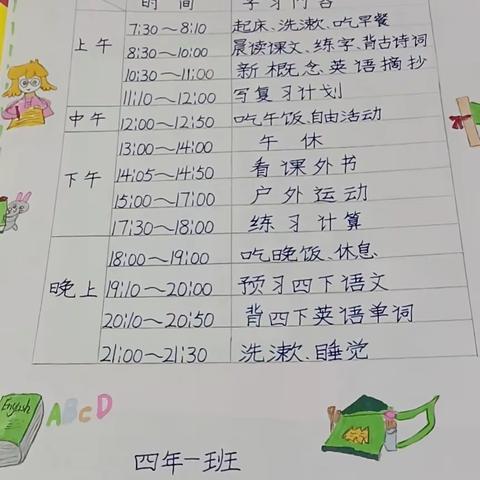 时间 学习内容
上午
7:30～8:10 起床、洗漱、吃早餐
8:30～10:00 晨读课文、练字、背古诗词
10:30～11:00 新概念英语摘抄
11:10～12:00 写复习计划
中午 12:00～12:50 吃午饭、自由活动
下午
13:00～14:00 午休
14:05～14:50 看课外书
15:00～17:00 户外运动
17:30～18:00 练习计算
晚上
18:00～19:00 吃晚饭、休息
19:10～20:00 预习四下语文
20:10～20:50 背四下英语单词
21:00～21:30 洗漱、睡觉
English ABCD
四年一班